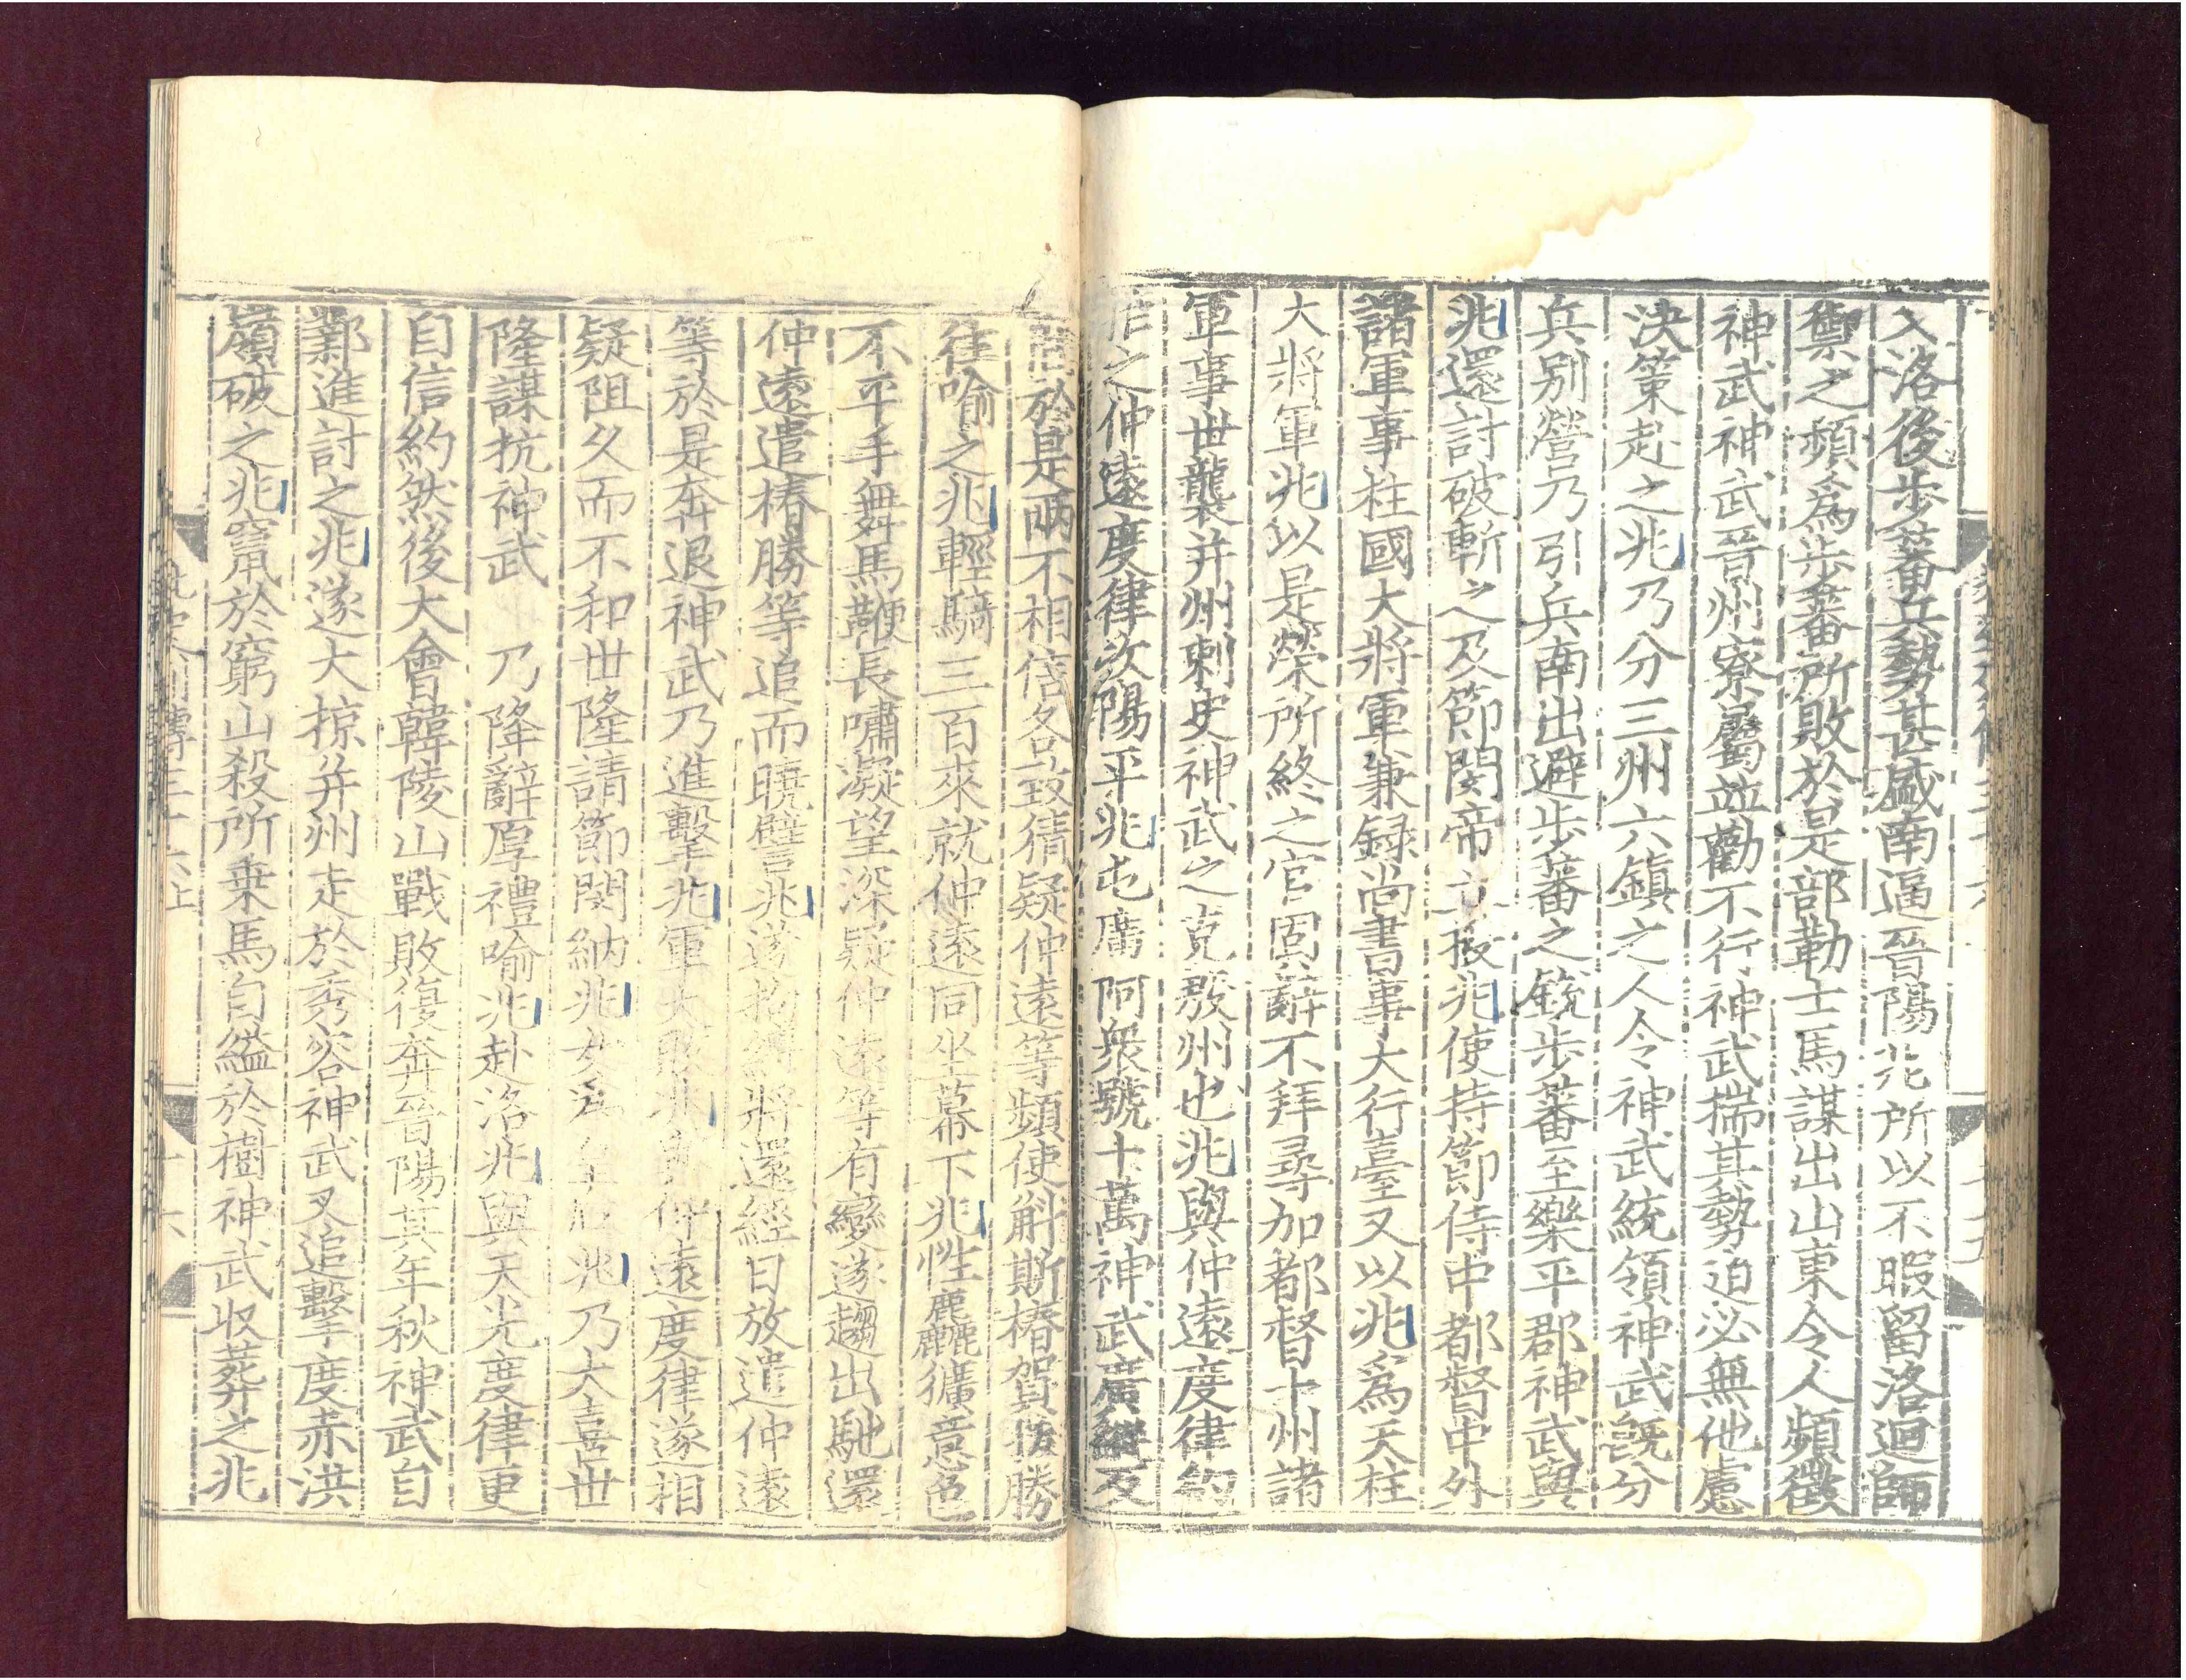 入洛後步蕃兵勢甚盛南逼晉陽兆所以不暇留洛迴師
禦之頻爲步蕃所敗於是部勒士馬謀出山東令人頻徵
神武神武晉州寮屬並勸不行神武揣其勢迫必無他慮
決策赴之兆乃分三州六鎮之人令神武統領神武旣分
兵別營乃引兵南出避步蕃之銳步蕃至樂平郡神武與
兆還討破斬之及節閔帝立授兆使持節侍中都督中外
諸軍事柱國大將軍兼録尚書事大行臺又以兆爲天柱
大將軍兆以是榮所終之官固辭不拜尋加都督十州諸
軍事世襲并州刺史神武之克殷州也兆與仲遠度律約
之仲遠度律次陽平兆屯廣阿衆號十萬神武廣縱反
於是兩不相信各致猜疑仲遠等頻使斛斯椿賀拔勝
往喻之兆輕騎三百來就仲遠同坐幕下兆性麤獷意色
不平手舞馬鞭長嘯凝望深疑仲遠等有變遂趨出馳還
仲遠遣椿勝等追而曉譬兆遂拘縛將還經日放遣仲遠
等於是奔退神武乃進擊兆軍大敗兆與仲遠度律遂相
疑阻久而不和世隆請節閔納兆女爲皇后兆乃大喜世
隆謀抗神武 乃降辭厚禮喻兆赴洛兆與天光度律更
自信約然後大會韓陵山戰敗復奔晉陽其年秋神武自
鄴進討之兆遂大掠并州走於秀容神武又追擊度赤洪
嶺破之兆竄於窮山殺所乗馬自縊於樹神武收葬之兆
列傳三十六上
十六